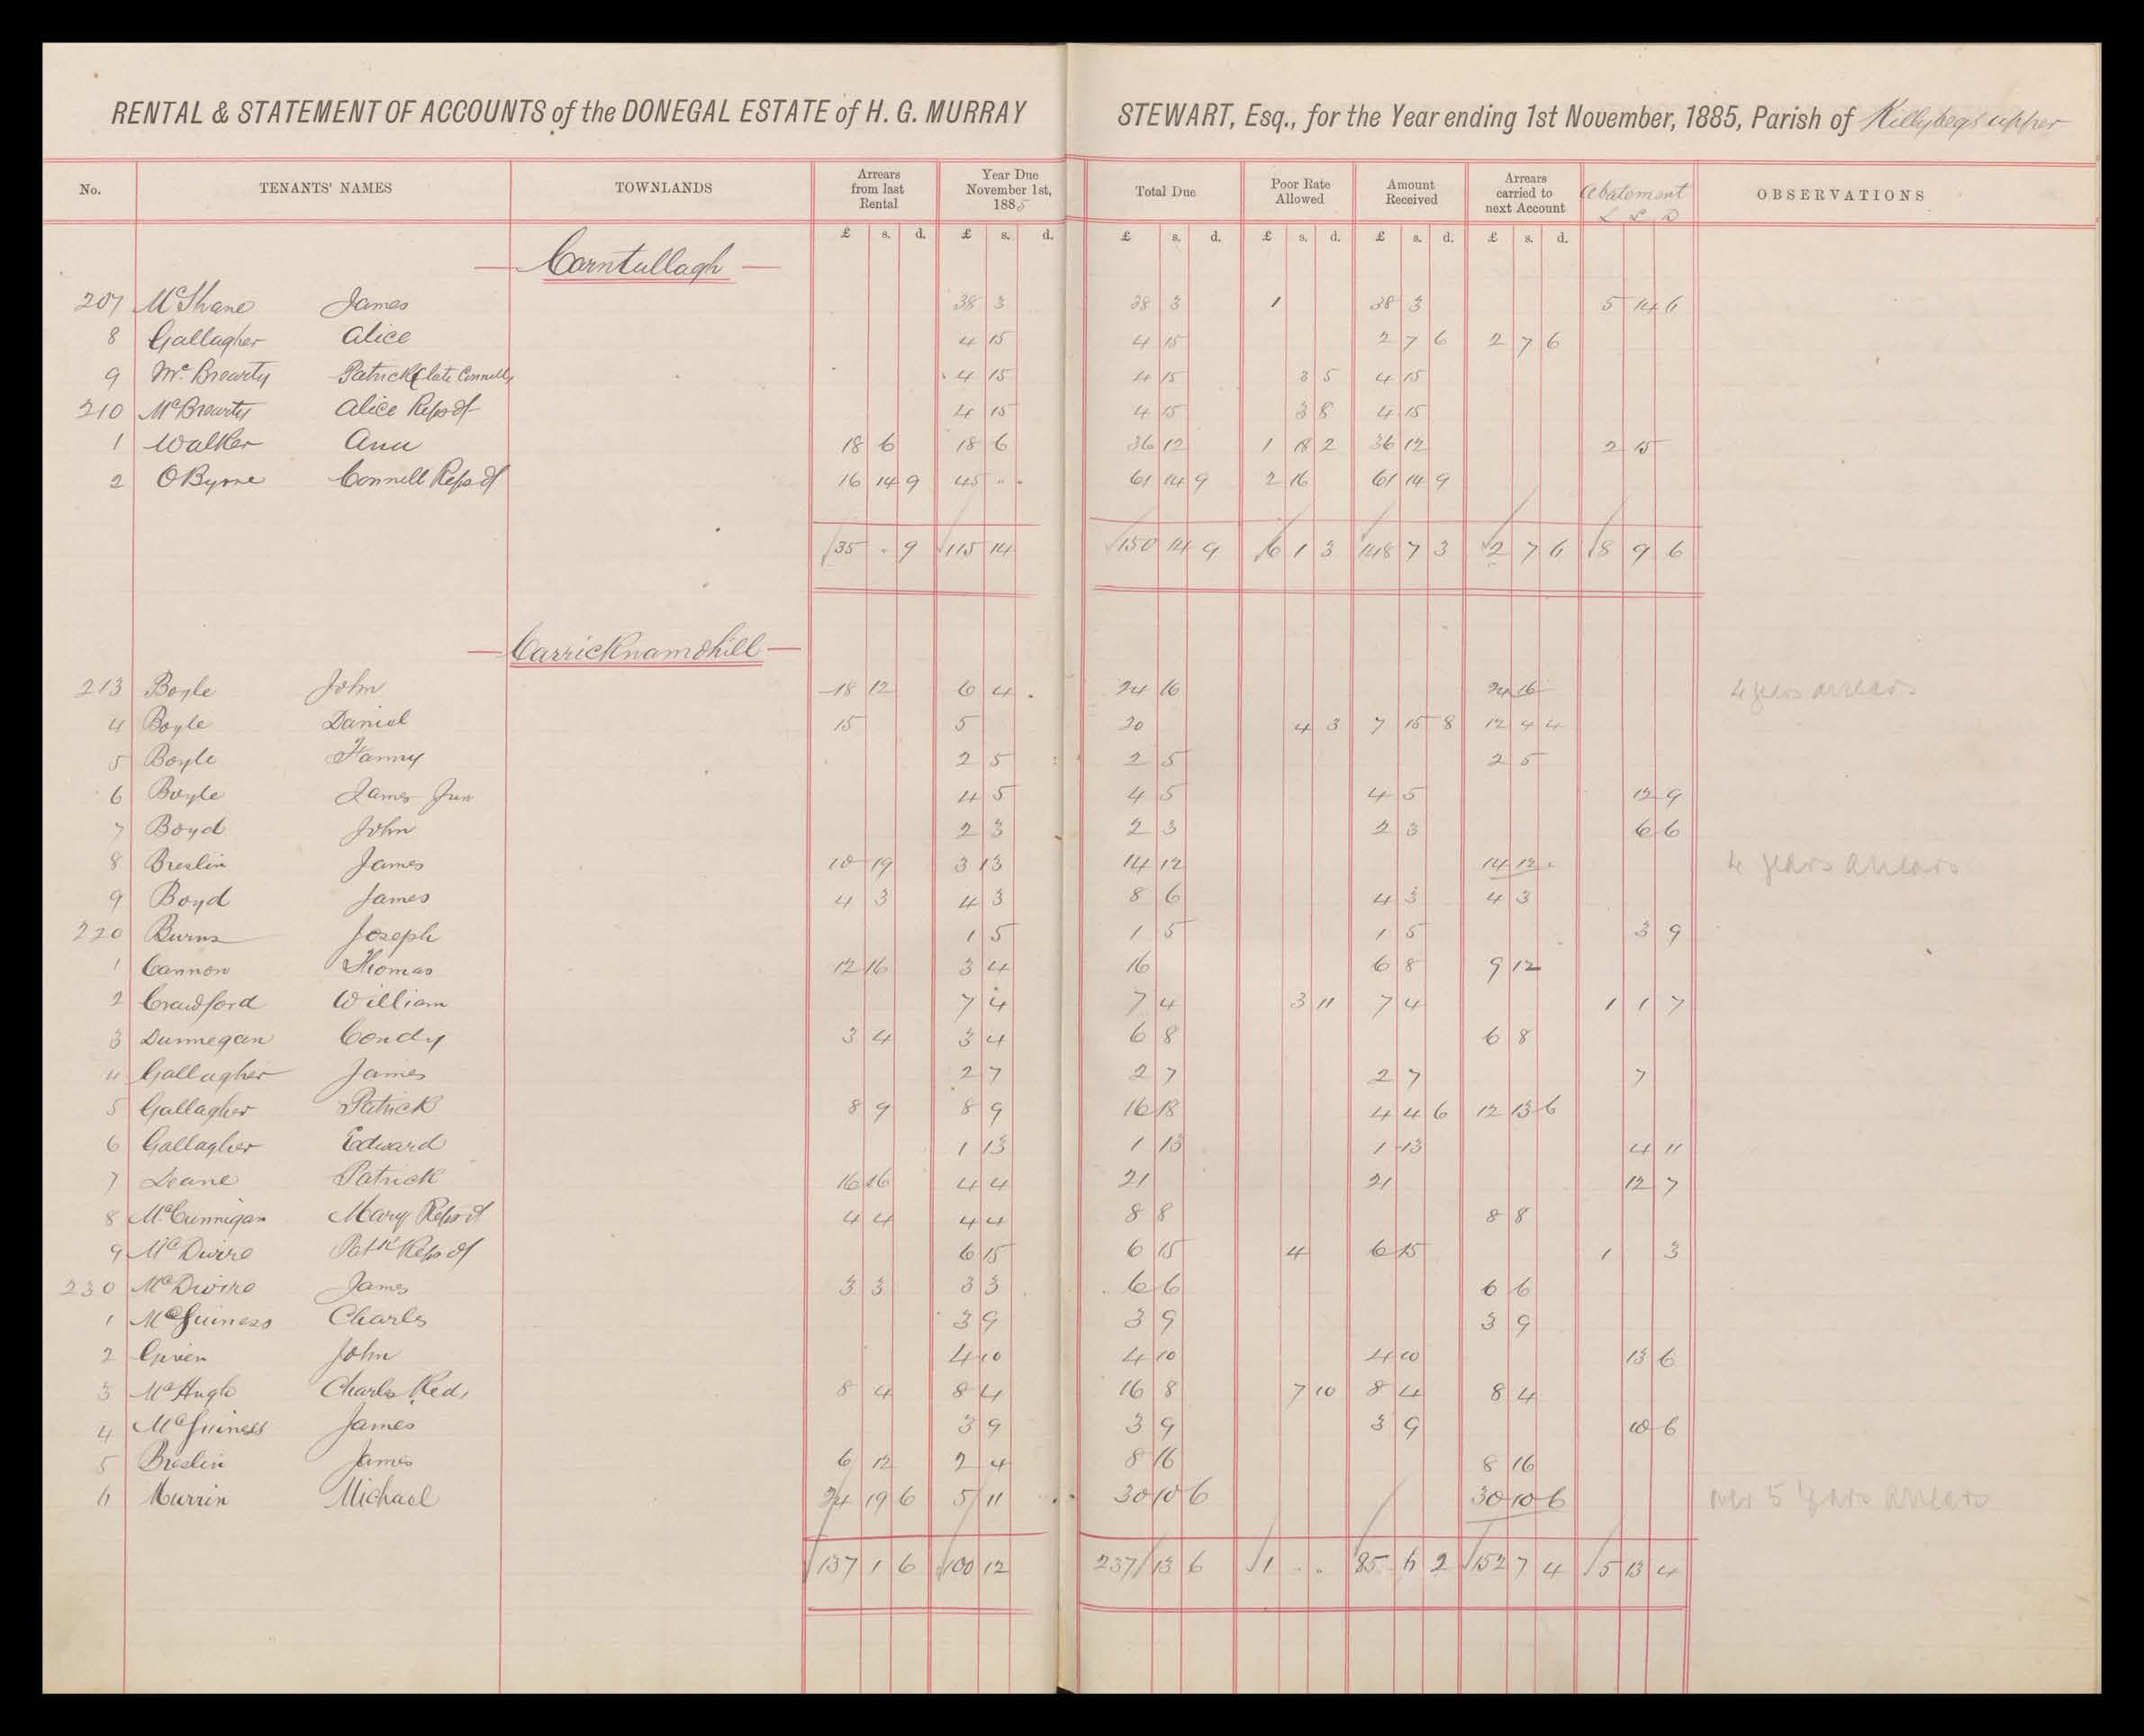 RENTAL & STATEMENT OF ACCOUNTS of the DONEGAL ESTATE of H. G. MURRAY STEWART, Esq., for the Year ending 1st November, 1885, Parish of Killybegs upper
No. TENANTS' NAMES TOWNLANDS Arrears from last Rental Year Due November 1st, 1885 Total Due Poor Rate Allowed Amount Received Arrears carried to next Account Abatement OBSERVATIONS
£ s. d. £ s. d. £ s. d. £ s. d. £ s. d. £ s. d. £ S D
Carntullagh
207 McShane James 38 3 38 3 1 38 3 5 14 6
8 Gallagher Alice 4 15 4 15 2 7 6 2 7 6
9 Mc Brearty Patrick (late Connelly 4 15 4 15 3 5 4 15
210 McBrearty Alice Reps of 4 15 4 15 3 8 4 15
1 Walker Ann 18 6 18 6 36 12 1 18 2 36 12 2 15
2 OByrne Connell Reps of 16 14 9 45 " " 61 14 9 2 16 61 14 9
35 . 9 115 14 150 14 9 6 1 3 148 7 3 2 7 6 8 9 6
Carricknamohill
213 Boyle John 18 12 6 4 24 16 24 16 4 years arrears
4 Boyle Daniel 15 5 20 4 3 7 15 8 12 4 4
5 Boyle Fanny 2 5 2 5 2 5
6 Boyle James Jun 4 5 4 5 4 5 12 9
7 Boyd John 2 3 2 3 2 3 6 6
8 Breslin James 10 19 3 13 14 12 14 12 4 years arrears
9 Boyd James 4 3 4 3 8 6 4 3 4 3
220 Burns Joseph 1 5 1 5 1 5 3 9
1 Cannon Thomas 12 16 3 4 16 6 8 9 12
2 Crawford William 7 4 7 4 3 11 7 4 1 1 7
3 Dunnegan Condy 3 4 3 4 6 8 6 8
4 Gallagher James 2 7 2 7 2 7 7
5 Gallagher Patrick 8 9 8 9 16 18 4 4 6 12 13 6
6 Gallagher Edward 1 13 1 13 1 13 4 11
7 Leane Patrick 16 16 4 4 21 21 12 7
8 McCunnigan Mary Reps of 4 4 4 4 8 8 8 8
9 McDwire Patk Reps of 6 15 6 15 4 6 15 1 3
230 McDwire James 3 3 3 3 6 6 6 6
1 McGuiness Charles 3 9 3 9 3 9
2 Given John 4 10 4 10 4 10 13 6
3 McHugh Charles Red, 8 4 8 4 16 8 7 10 8 4 8 4
4 McGuiness James 3 9 3 9 3 9 10 6
5 Breslin James 6 12 2 4 8 16 8 16
6 Murrin Michael 24 19 6 5 11 30 10 6 30 10 6 over 5 years arrears
137 1 6 100 12 237 13 6 1 . . 85 6 2 152 7 4 5 13 4